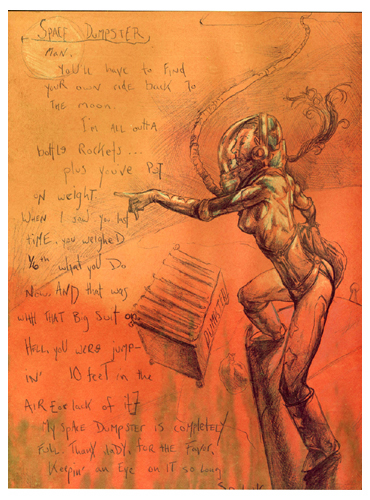 SPACE DUMPSTER
MAN.
You'll have to find
your own ride back to
the moon.
I'm all outta
bottle Rockets...
plus you've put
on weight.
When I saw you last
time, you weighed
1/6th what you do
now. And that was
with that big suit on.
Hell, you were jump-
in' 10 feet in the
air
My Space Dumpster is completely
full. Thank lady, for the favor,
Keepin' an eye on it so long.
DUMPSTER